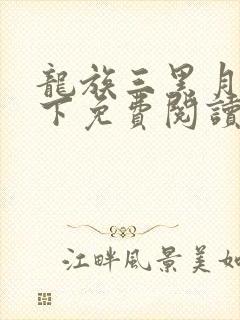 龍族三黑月
下免費閱讀
江畔風景美如